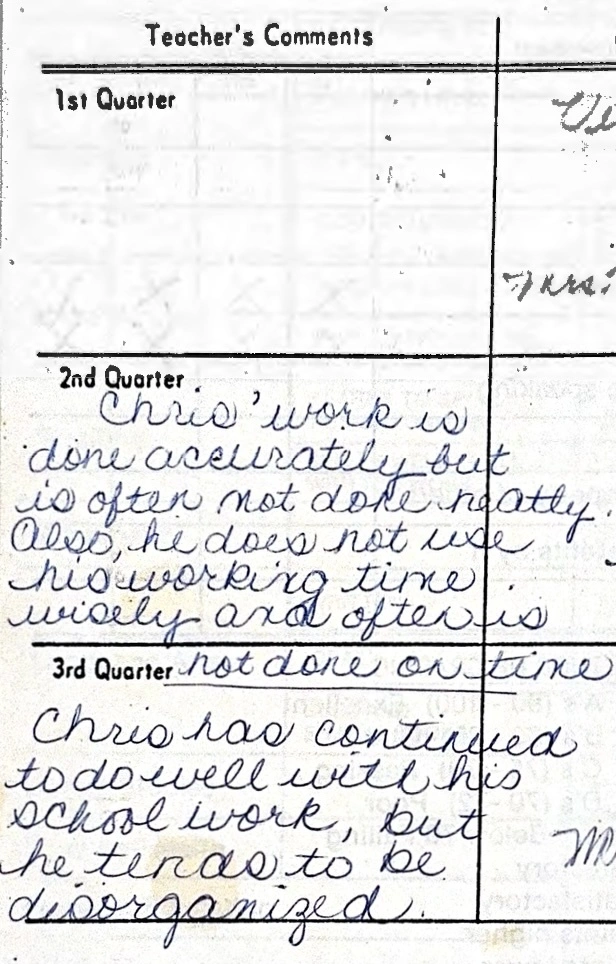 Teacher's Comments
1st Quarter
2nd Quarter
Chris' work is
done accurately but
is often not done neatly.
Also, he does not use
his working time
wisely and often is
3rd Quarter not done on time
Chris has continued
to do well with his
school work, but
he tends to be
disorganized.